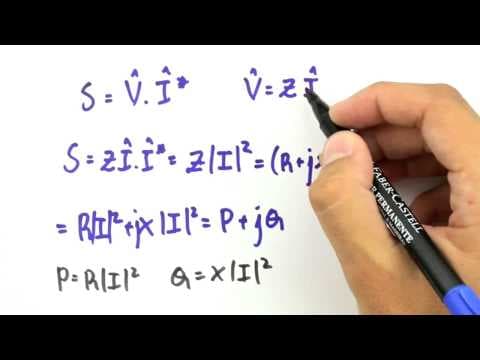 S = V̂ . Î*   V̂ = Z Î
S = Z Î . Î* = Z |I|² = (R + j
= R|I|² + jX |I|² = P + jQ
P = R|I|²   Q = X |I|²
FABER-CASTELL
PERMANENTE